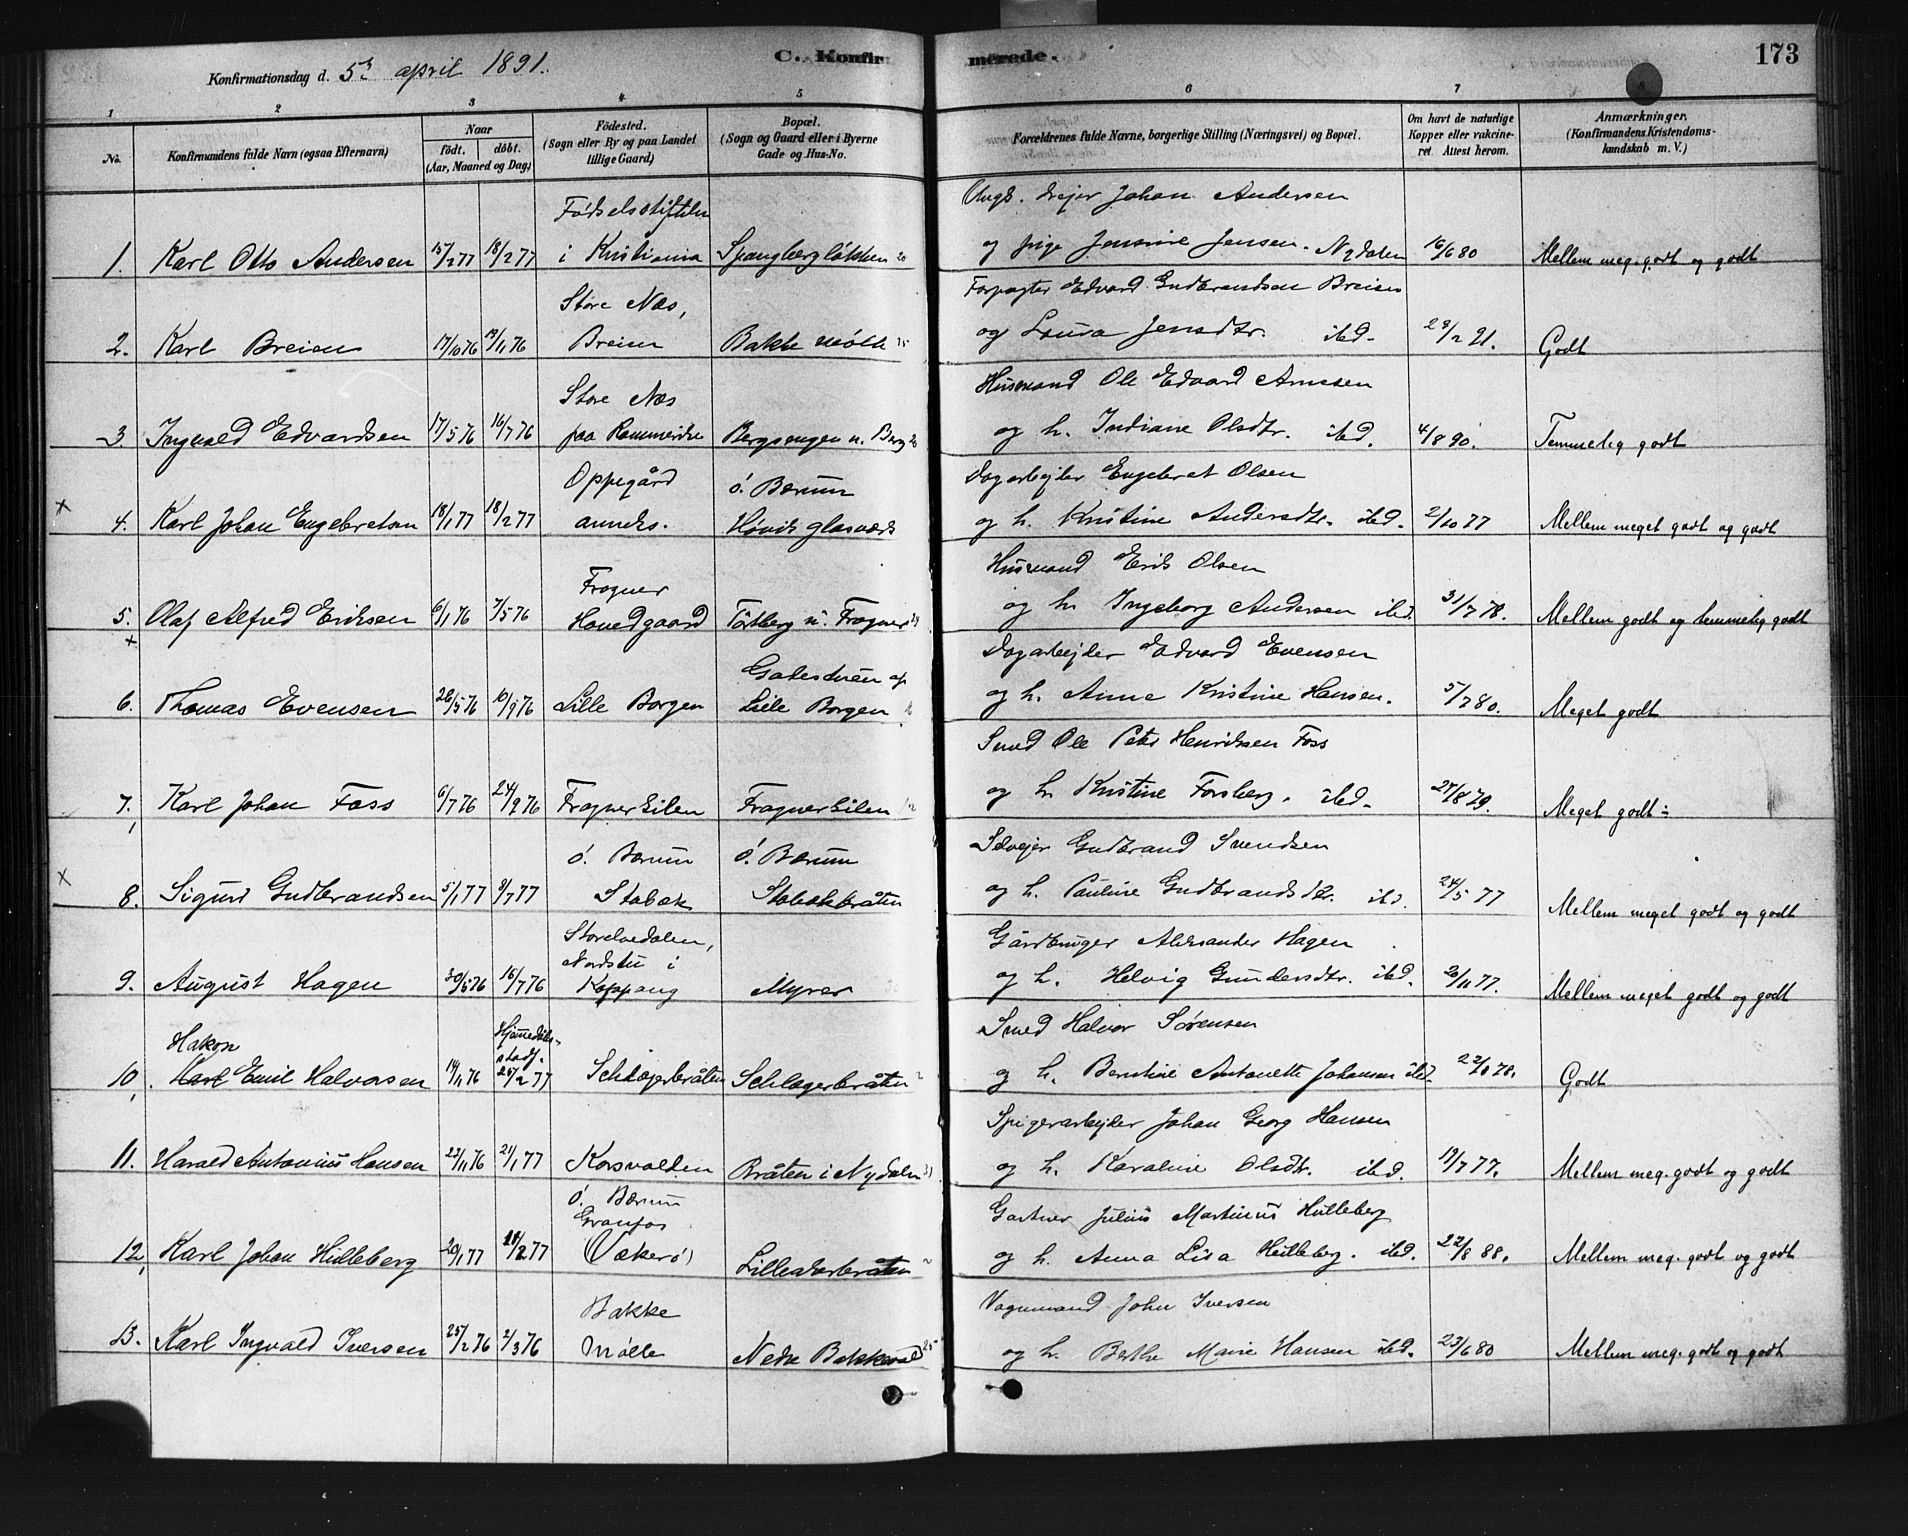 Konfirmationsdag d. 5te april 1891.
C. Konfirmerede.
173
1 2 3 4 5 6 7 8
No.
Konfirmandens fulde Navn (ogsaa Efternavn)
Naar
født. døbt.
(Aar, Maaned og Dag)
Fødested.
(Sogn eller By og paa Landet
tillige Gaard)
Bopæl.
(Sogn og Gaard eller i Byerne
Gade og Hus-No.
Forældrenes fulde Navne, borgerlige Stilling (Næringsvei) og Bopæl.
Om havt de naturlige
Kopper eller vakcine-
ret. Attest herom.
Anmærkninger.
(Konfirmandens Kristendoms-
kundskab m. V.)
Fødselsstiftelsen
Ungk. Johan Andersen
1. Karl Otto Andersen 15/2 77 18/2 77 i Kristiania Spangbergløkken og pige Jensine Jensen. Nydalen 16/6 80 Mellem meg. godt og godt
Store Næs,
Forpagter Edvard Gudbrandsen Breien
2. Karl Breien 17/10 76 19/11 76 Breien Bakke mølle og Laura Jensdtr. ibd. 28/2 91. Godt
Store Næs
Husmand Ole Edvard Arnesen
3. Ingvald Edvardsen 17/5 76 16/7 76 paa Bergsengen u. Berg og h. Indiane Olsdtr. ibd. 4/8 90. Temmelig godt
Oppegård ø. Bærum
Dagarbejder Engebret Olsen
x 4. Karl Johan Engebretsen 18/1 77 18/2 77 anneks. Høvik glasværk og h. Kristine Andersdtr. ibd. 2/10 77 Mellem meget godt og godt
Frogner
Husmand Erik Olsen
5. Olaf Alfred Eriksen 6/1 76 7/5 76 Hovedgaard Tørtberg u. Frogner og h. Ingeborg Andersen ibd. 31/7 78. Mellem godt og temmelig godt
Gatestuen af
Dagarbejder Edvard Evensen
x 6. Thomas Evensen 26/5 76 10/9 76 Lille Borgen Lille Borgen og h. Anne Kristine Hansen. 5/7 80. Meget godt
Smed Ole Peter Henriksen Foss
7. Karl Johan Foss 6/7 76 24/9 76 Frognerkilen Frognerkilen og h. Kristine Forsberg. ibd. 27/8 79. Meget godt
ø. Bærum ø. Bærum
Selvejer Gudbrand Svendsen
x 8. Sigurd Gudbrandsen 5/1 77 8/7 77 Stabæk Stabækbråten og h. Pauline Gudbrandsdtr. ibd. 24/5 77 Mellem meget godt og godt
Storelvedalen,
Nordstu i
Gårdbruger Aleksander Hagen
9. August Hagen 30/5 76 16/7 76 Koppang Myrer og h. Helvig Gundersdtr. ibd. 26/11 77. Mellem meget godt og godt
Hakon
Hjemmedøbt
stadf.
Smed Halvor Sørensen
10. Karl Emil Halvorsen 14/11 76 25/2 77 Schlagerbråten Schlagerbråten og h. Berntine Antonette Johansen ibd. 22/8 78. Godt
Spigerarbejder Johan Georg Hansen
11. Harald Antonius Hansen 22/11 76 21/1 77 Korsvolden Bråten i Nydalen og h. Karoline Olsdtr. ibd. 19/7 77. Mellem meg. godt og godt
ø. Bærum
Granfos
Gartner Julius Martinus Hilleberg
12. Karl Johan Hilleberg 20/1 77 /2 77 (Vækerø) og h. Anna Lisa Hilleberg. ibd. 22/8 88. Mellem meg. godt og godt
Bakke
Vognmand John Iversen
13. Karl Ingvald Iversen 25/2 76 2/3 76 Mølle Nedre og h. Berthe Marie Hansen ibd. 23/6 80 Mellem meg. godt og godt